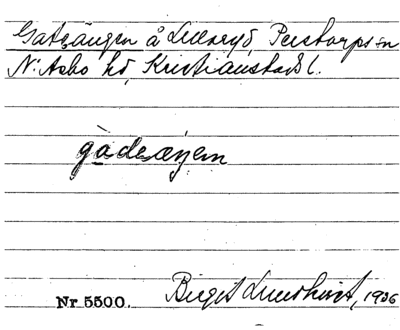 Gateängen å Lillaryd, Perstorps sn
N. Åsbo hd, Kristianstads l.
gàdeæŋen
Nr 5500. Birgit Lundkvist, 1936